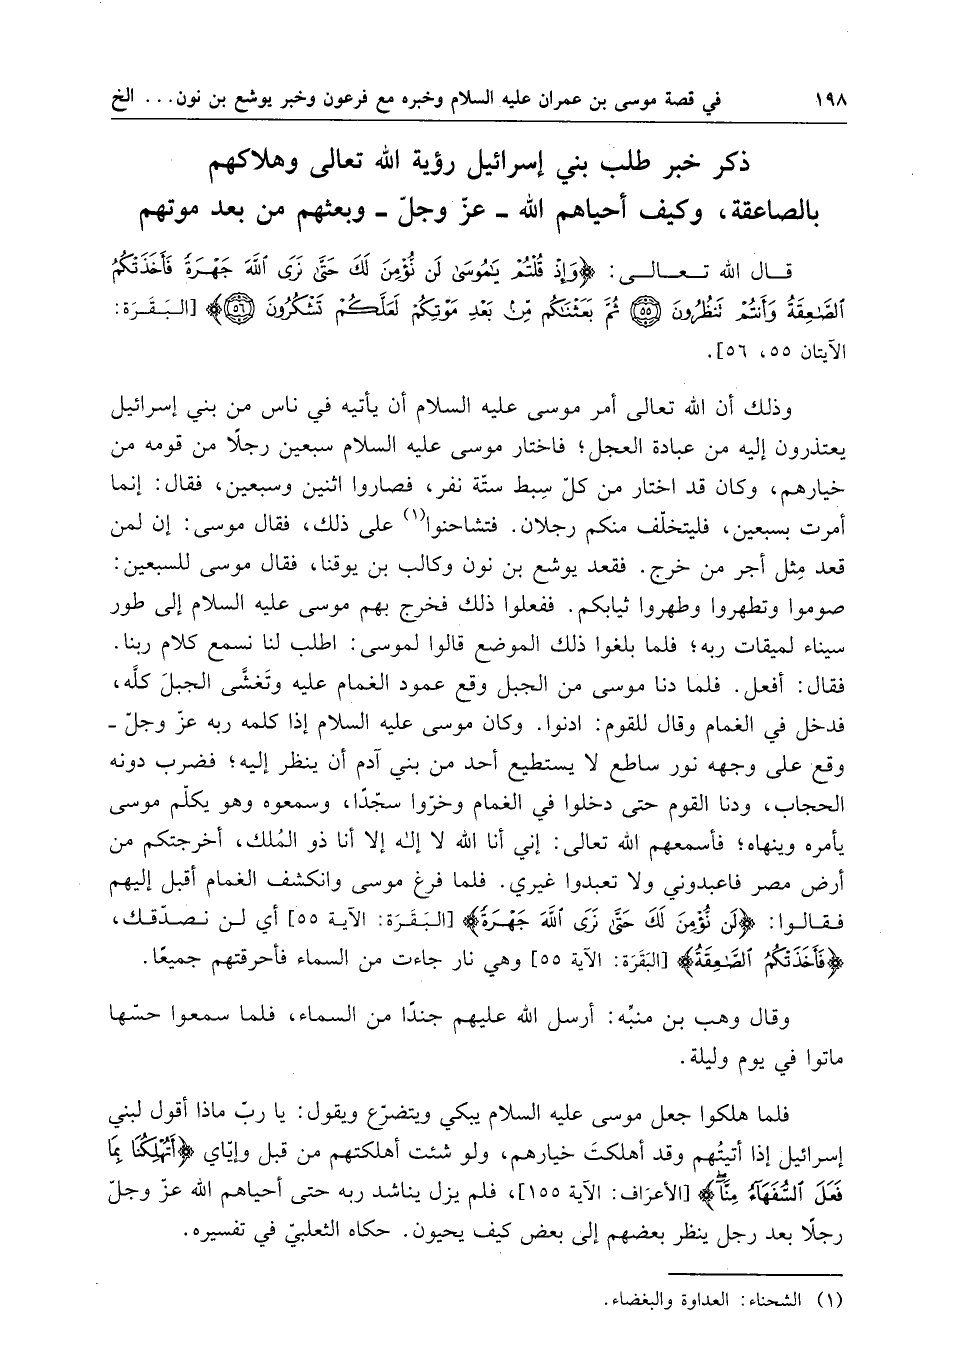 ١٩٨ في قصة موسى بن عمران عليه السلام وخبره مع فرعون وخبر يوشع بن نون... الخ
ذكر خبر طلب بني إسرائيل رؤية الله تعالى وهلاكهم
بالصاعقة، وكيف أحياهم الله ـ عزّ وجلّ ـ وبعثهم من بعد موتهم
قال الله تعالى: ﴿وَإِذْ قُلْتُمْ يَٰمُوسَىٰ لَن نُّؤْمِنَ لَكَ حَتَّىٰ نَرَى ٱللَّهَ جَهْرَةً فَأَخَذَتْكُمُ
ٱلصَّٰعِقَةُ وَأَنتُمْ تَنظُرُونَ ۝٥٥ ثُمَّ بَعَثْنَٰكُم مِّنۢ بَعْدِ مَوْتِكُمْ لَعَلَّكُمْ تَشْكُرُونَ ۝٥٦﴾ [البَقَرَة:
الآيتان ٥٥، ٥٦].
وذلك أن الله تعالى أمر موسى عليه السلام أن يأتيه في ناس من بني إسرائيل
يعتذرون إليه من عبادة العجل؛ فاختار موسى عليه السلام سبعين رجلًا من قومه من
خيارهم، وكان قد اختار من كلّ سِبط ستّة نفر، فصاروا اثنين وسبعين، فقال: إنما
أمرت بسبعين، فليتخلّف منكم رجلان. فتشاحنوا(١) على ذلك، فقال موسى: إن لمن
قعد مِثل أجر من خرج. فقعد يوشع بن نون وكالب بن يوقنا، فقال موسى للسبعين:
صوموا وتطهروا وطهروا ثيابكم. ففعلوا ذلك فخرج بهم موسى عليه السلام إلى طور
سيناء لميقات ربه؛ فلما بلغوا ذلك الموضع قالوا لموسى: اطلب لنا نسمع كلام ربنا.
فقال: أفعل. فلما دنا موسى من الجبل وقع عمود الغمام عليه وتَغشَّى الجبلَ كلَّه،
فدخل في الغمام وقال للقوم: ادنوا. وكان موسى عليه السلام إذا كلمه ربه عزّ وجلّ ـ
وقع على وجهه نور ساطع لا يستطيع أحد من بني آدم أن ينظر إليه؛ فضرب دونه
الحجاب، ودنا القوم حتى دخلوا في الغمام وخرّوا سجّدًا، وسمعوه وهو يكلّم موسى
يأمره وينهاه؛ فأسمعهم الله تعالى: إني أنا الله لا إله إلا أنا ذو المُلك، أخرجتكم من
أرض مصر فاعبدوني ولا تعبدوا غيري. فلما فرغ موسى وانكشف الغمام أقبل إليهم
فقالوا: ﴿لَن نُّؤْمِنَ لَكَ حَتَّىٰ نَرَى ٱللَّهَ جَهْرَةً﴾ [البَقَرَة: الآية ٥٥] أي لن نصدّقك،
﴿فَأَخَذَتْكُمُ ٱلصَّٰعِقَةُ﴾ [البَقَرَة: الآية ٥٥] وهي نار جاءت من السماء فأحرقتهم جميعًا.
وقال وهب بن منبِّه: أرسل الله عليهم جندًا من السماء، فلما سمعوا حسّها
ماتوا في يوم وليلة.
فلما هلكوا جعل موسى عليه السلام يبكي ويتضرّع ويقول: يا ربّ ماذا أقول لبني
إسرائيل إذا أتيتُهم وقد أهلكتَ خيارهم، ولو شئت أهلكتهم من قبل وإيّاي ﴿أَتُهْلِكُنَا بِمَا
فَعَلَ ٱلسُّفَهَآءُ مِنَّآ﴾ [الأعرَاف: الآية ١٥٥]، فلم يزل يناشد ربه حتى أحياهم الله عزّ وجلّ
رجلًا بعد رجل ينظر بعضهم إلى بعض كيف يحيون. حكاه الثعلبيّ في تفسيره.
(١) الشحناء: العداوة والبغضاء.